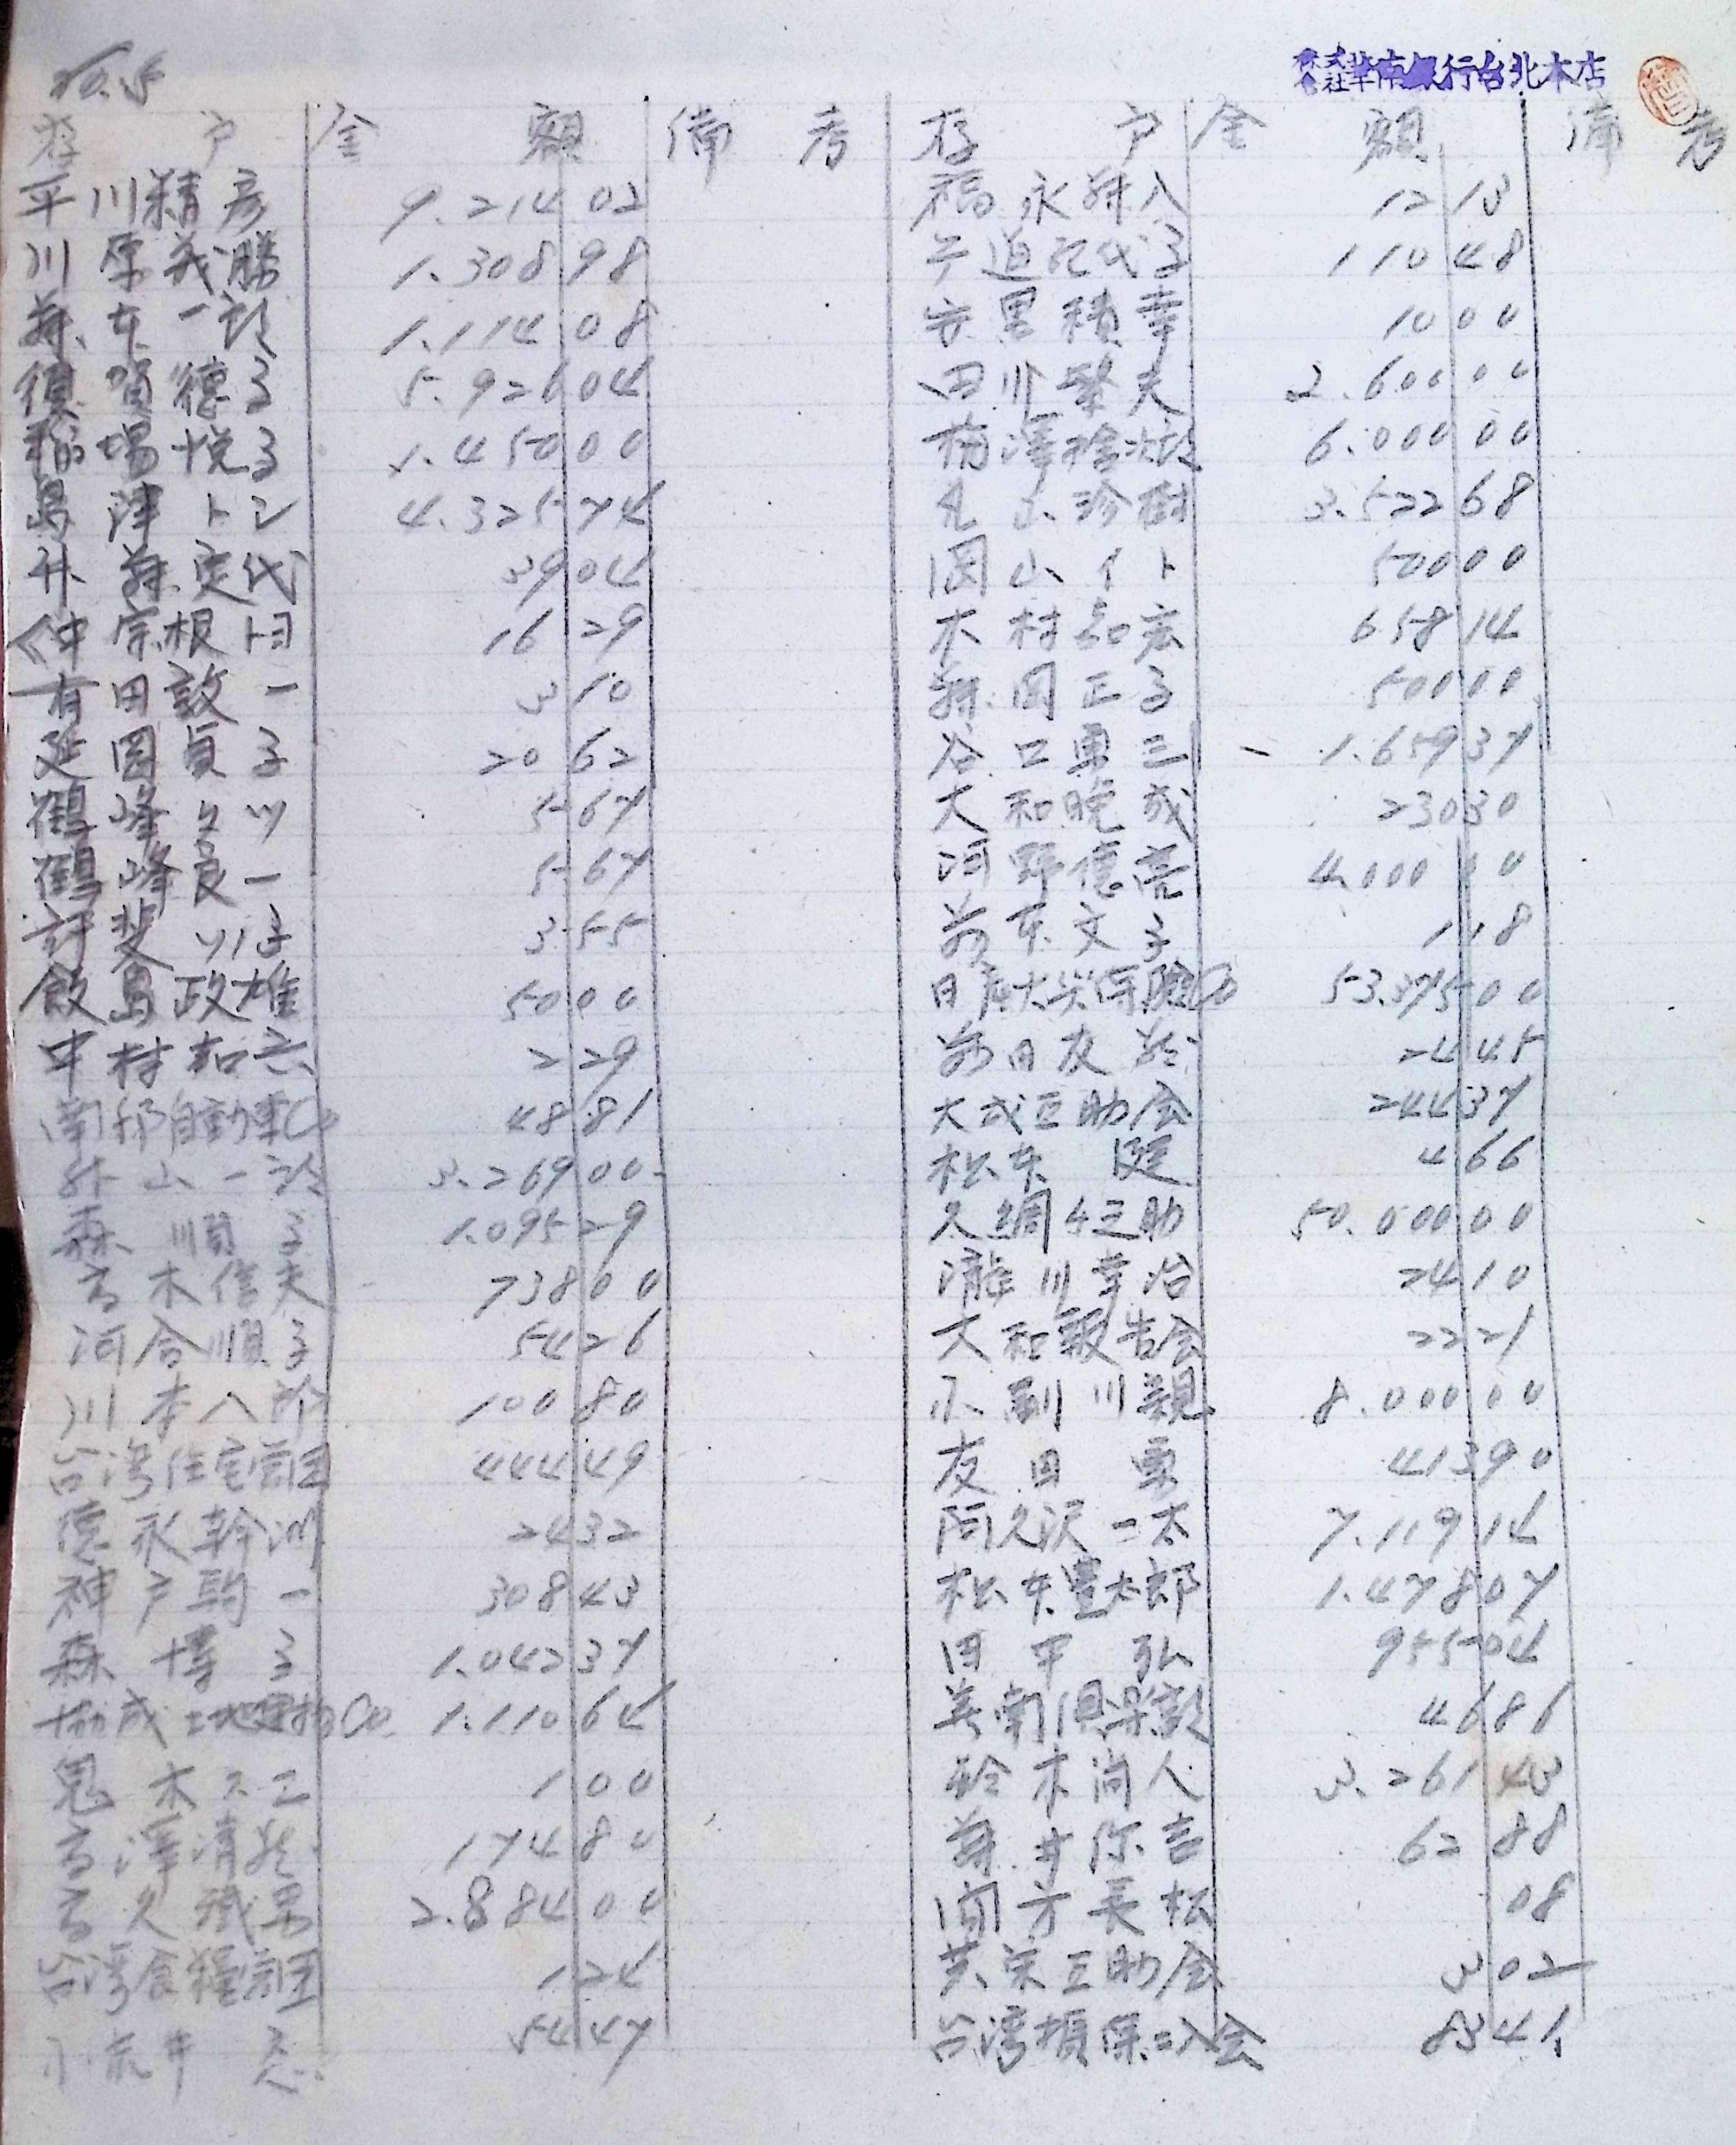 株式会社華南銀行台北本店
存戶 金額 備考 存戶 金額 備考
平川精彦 9.214 02
川原義勝 1.308 98
藤本一郎 1.114 08
須賀徳子 5.926 04
稲場悦子 1.450 00
島津トシ 4.325 74
升藤定代 39 04
仲宗根トヨ 16 29
有田敦一 3 10
延岡貞子 20 62
鶴峰 ツ 5 67
鶴峰良一 5 67
3 55
飯島政雄 50 00
中村 2 29
南邦自動車Co 48 81
外山一郎 3.269 00
森順子 1.095 29
高木信夫 738 00
河合順子 54 26
川本八郎 100 80
台湾住宅営団 444 49
徳永幹 24 32
神戸駒一 308 43
森博子 1.042 37
協成土地建物Co 1.110 64
鬼木 1 00
高澤清 174 80
高久 男 2.884 00
台湾食糧営団 1 24
54 47
福永藤八 12 13
110 48
安里積幸 10 00
田川繁夫 2.600 00
梅澤捨次郎 6.000 00
丸山珍樹 3.522 68
岡山イト 500 00
木村知宏 658 14
藤岡正子 500 00
谷口勇三 1.659 37
大和晩成 230 30
河野徳亮 4.000 00
前東文子 1 18
日産火災保険Co 53.375 00
前田友 24 45
大成互助会 244 37
松本健 4 66
久綱 助 50.000 00
瀧川幸治 24 10
大和報告会 22 21
小副川親 8.000 00
友田 413 90
阿久沢一太 7.119 14
松本豊太郎 1.478 07
田中弘 955 04
美南倶楽部 46 86
鈴木尚人 3.261 43
藤井弥吉 62 88
関方長松 08
共栄互助会 3 02
台湾損保 会 83 41